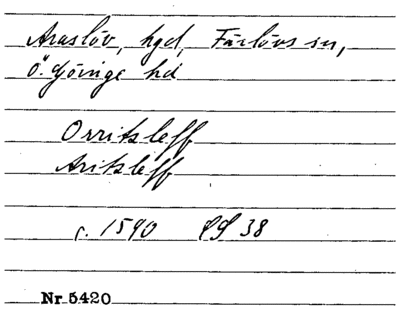 Araslöv, hgd, Färlövs sn,
Ö. Göinge hd
Orritsleff
Aritsleff
c. 1590 PS 38
Nr 5420